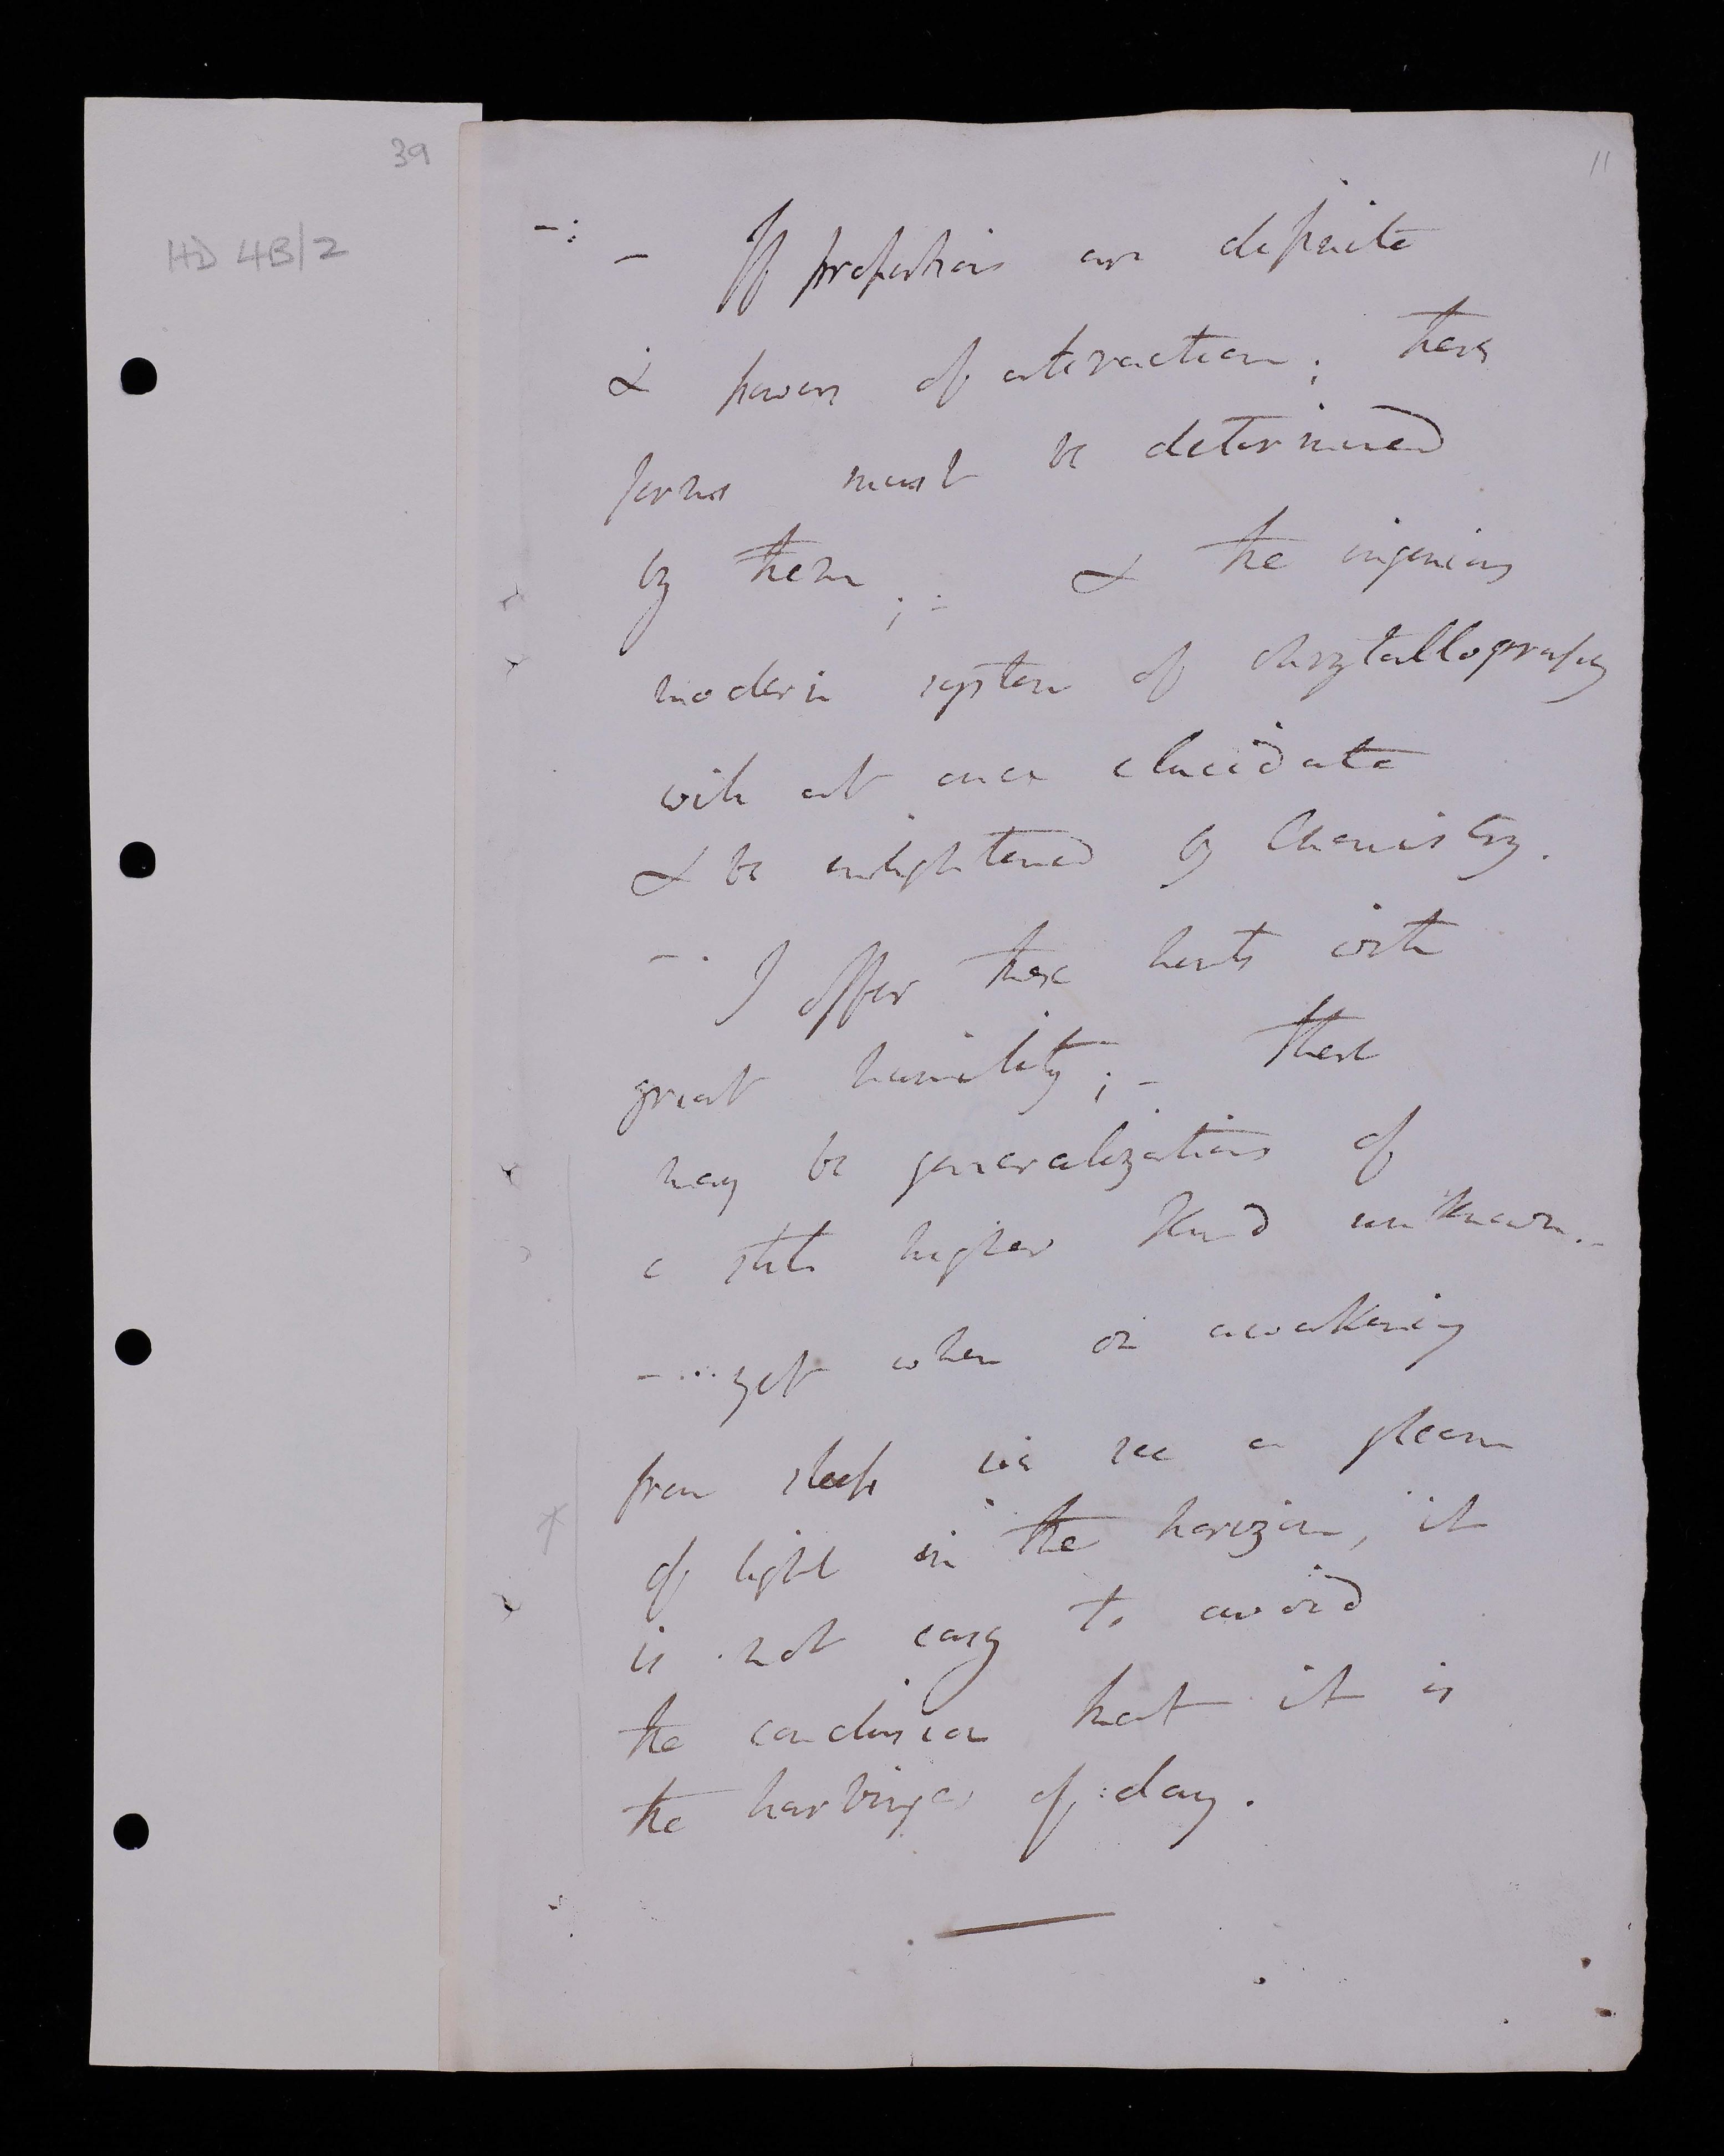 39
11
HD 4B/2
-: - If proportions are definite
& powers of attraction; these
forms must be determined
by them ;- & the ingenious
modern system of chrystallography
will at once elucidate
& be enlightened by Chemistry.
-. I offer these hints with
great humility; - There
may be generalizations of
a still higher kind unknown.-
-... yet when on awakening
from sleep we see a gleam
of light in the horizon, it
is not easy to avoid
the conclusion that it is
the harbinger of day.